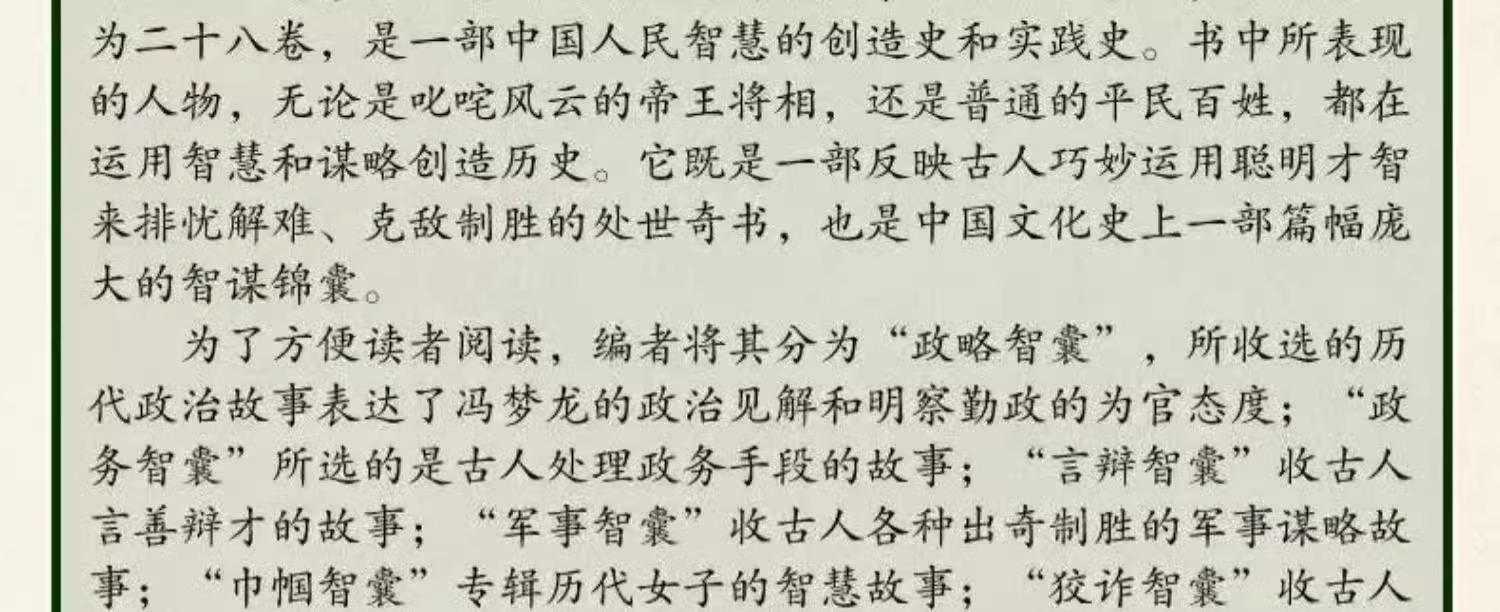 为二十八卷，是一部中国人民智慧的创造史和实践史。书中所表现
的人物，无论是叱咤风云的帝王将相，还是普通的平民百姓，都在
运用智慧和谋略创造历史。它既是一部反映古人巧妙运用聪明才智
来排忧解难、克敌制胜的处世奇书，也是中国文化史上一部篇幅庞
大的智谋锦囊。
为了方便读者阅读，编者将其分为“政略智囊”，所收选的历
代政治故事表达了冯梦龙的政治见解和明察勤政的为官态度；“政
务智囊”所选的是古人处理政务手段的故事；“言辩智囊”收古人
言善辩才的故事；“军事智囊”收古人各种出奇制胜的军事谋略故
事；“巾帼智囊”专辑历代女子的智慧故事；“狡诈智囊”收古人